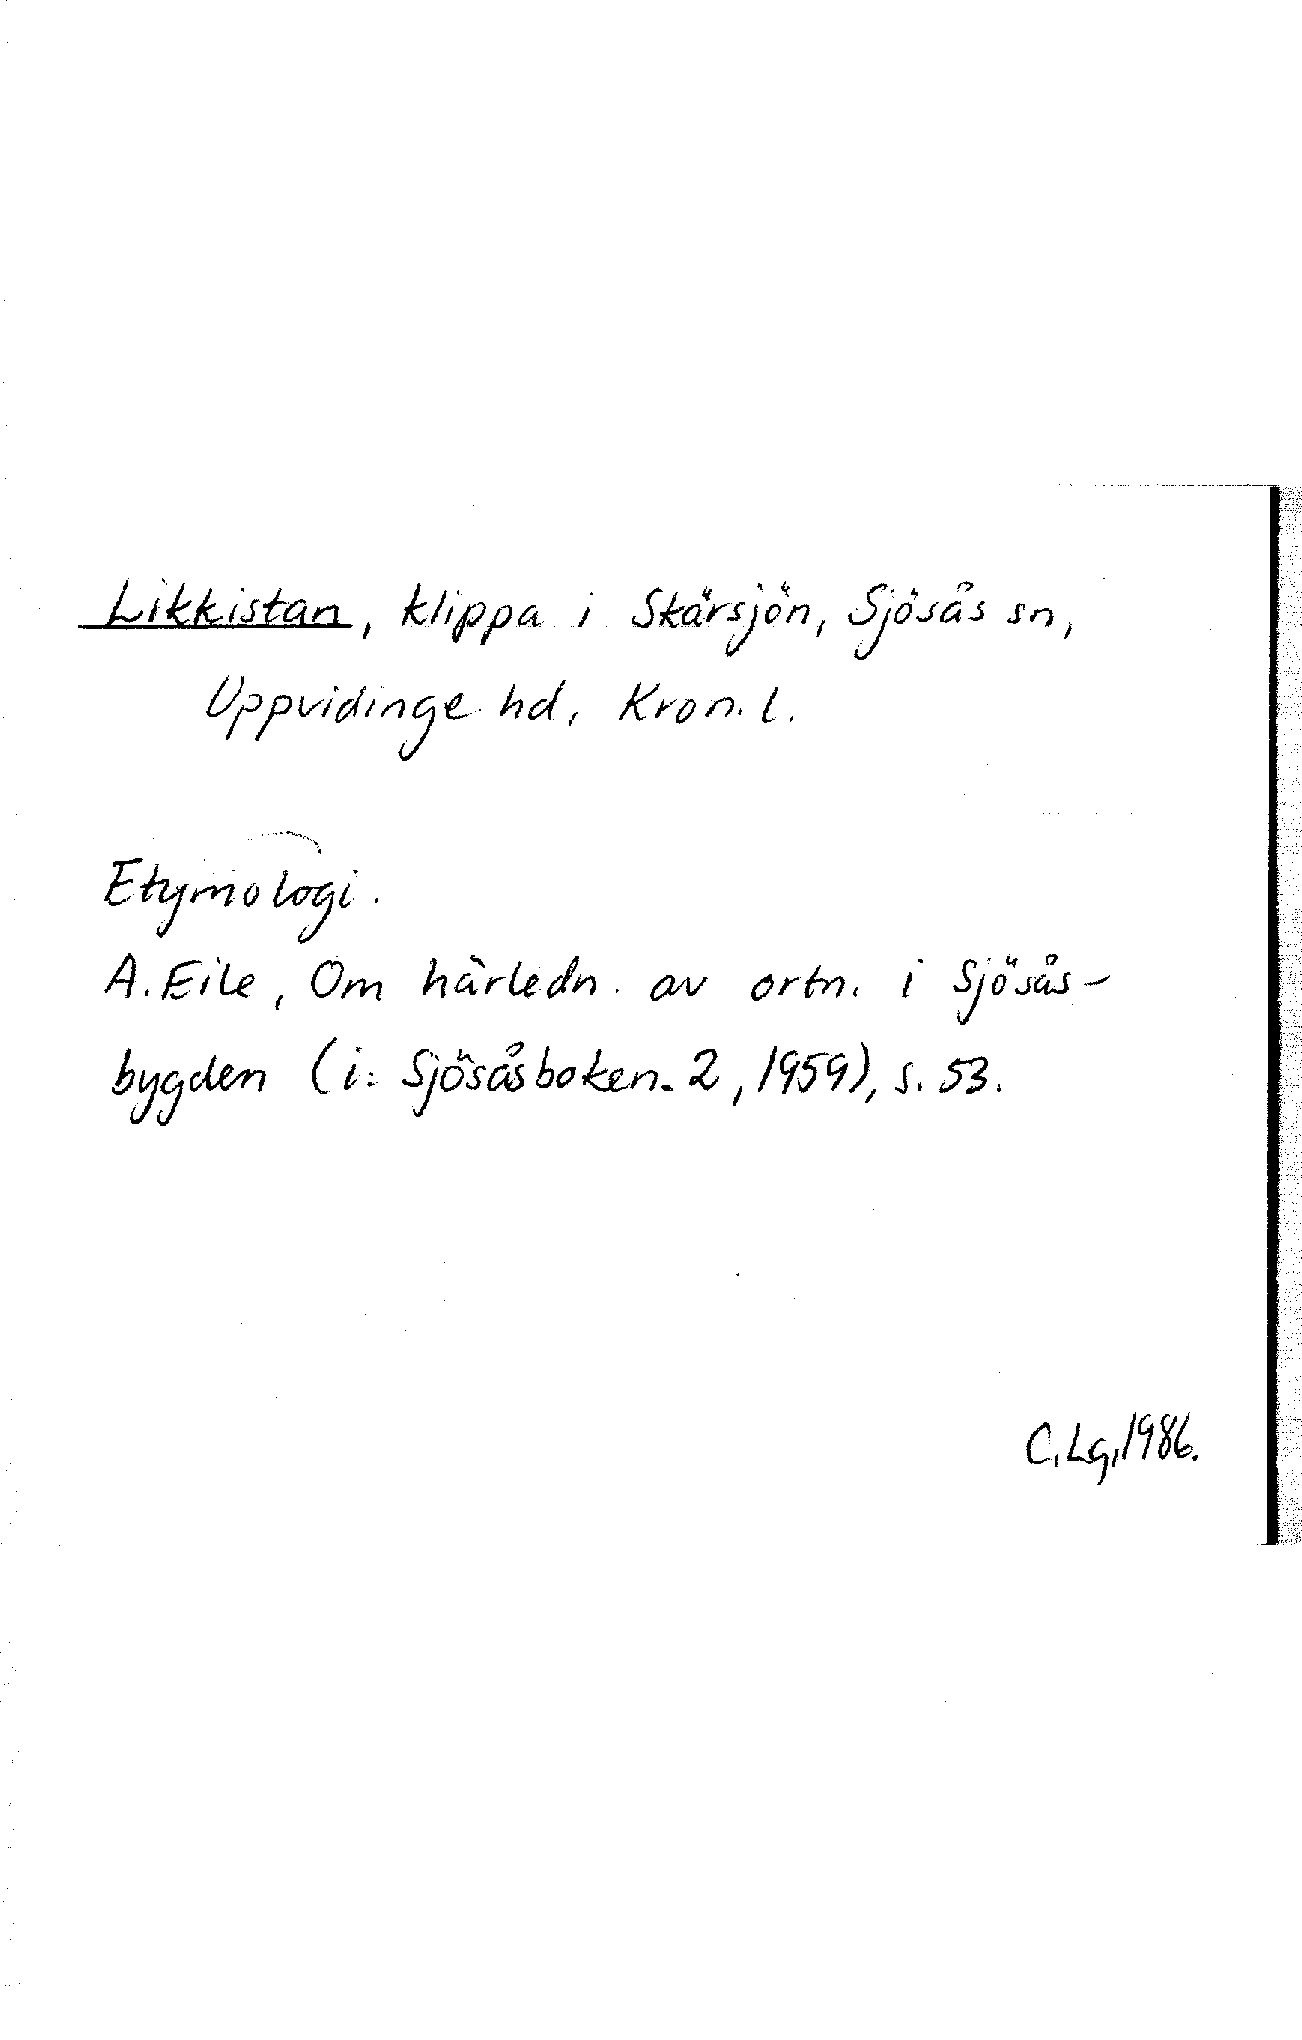 Likkistan, klippa i Skärsjön, Sjösås sn,
Uppvidinge hd, Kron. l.
Etymologi.
A. Eile, Om härledn. av ortn. i Sjösås-
bygden (i: Sjösåsboken. 2, 1959), s. 53.
C. Lg, 1986.